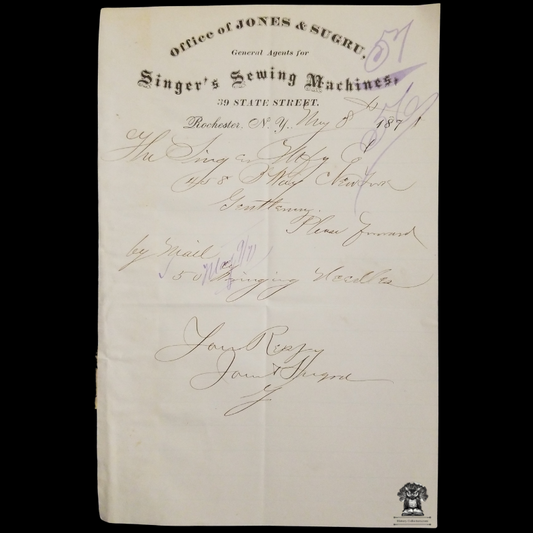 Office of JONES & SUGRU,
57
General Agents for
Singer's Sewing Machines,
39 STATE STREET.
Rochester, N.Y. May 8th 1871
The Singer Mfg Co
458 B Way New York
Gentlemen.
Please forward
by Mail
50 Fringing Needles
Your Respy
Jones & Sugru